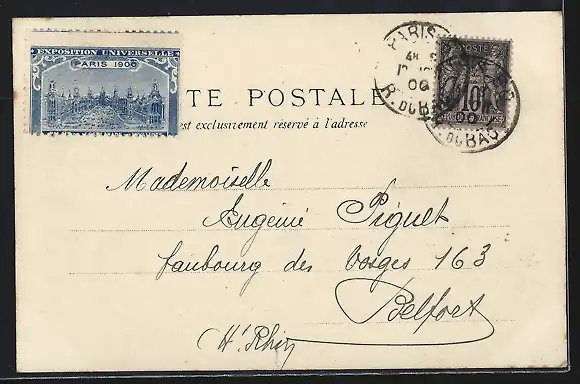 EXPOSITION UNIVERSELLE
PARIS 1900
TE POSTALE
est exclusivement réservé à l'adresse
POSTE
10
PARIS
00
R. DU BAC
Mademoiselle
Eugénie Piguet
faubourg des Vosges 163
Belfort
Ht Rhin